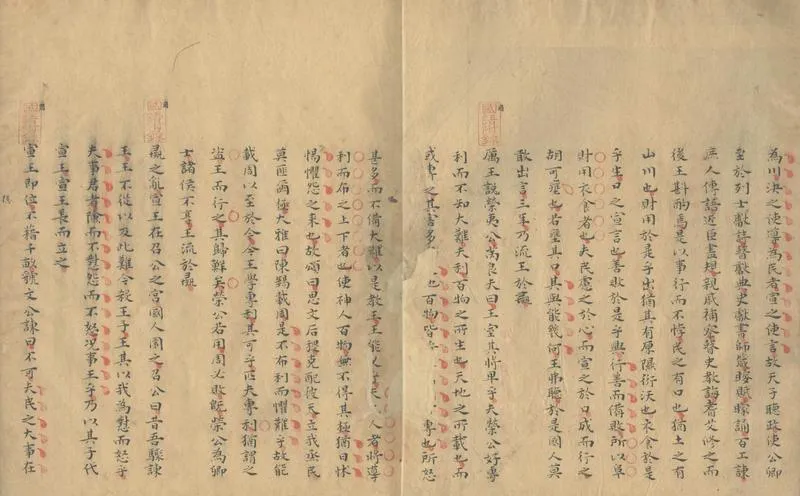 為川決之使導為民者宣之使言故天子聽政使公卿
至於列士獻詩瞽獻典史獻書師箴瞍賦矇誦百工諫
庶人傳語近臣盡規親戚補察瞽史教誨耆艾修之而
後王斟酌焉是以事行而不悖民之有口也猶土之有
山川也財用於是乎出猶其有原隰衍沃也衣食於是
乎生口之宣言也善敗於是乎興行善而備敗所以阜
財用衣食者也夫民慮之於心而宣之於口成而行之
胡可壅也若壅其口其與能幾何王弗聽於是國人莫
敢出言三年乃流王於彘
厲王說榮夷公芮良夫曰王室其將卑乎夫榮公好專
利而不知大難夫利百物之所生也天地之所載也而
或專之其害多也百物皆專也所怒
甚多而不備大難以是教王王能久乎夫人者將導
利而布之上下者也使神人百物無不得其極猶曰怵
惕懼怨之來也故頌曰思文后稷克配彼天立我烝民
莫匪爾極大雅曰陳錫載周是不布利而懼難乎故能
載周以至於今今王學專利其可乎匹夫專利猶謂之
盜王而行之其歸鮮矣榮公若用周必敗既榮公為卿
士諸侯不享王流於彘
彘之亂宣王在召公之宮國人圍之召公曰昔吾驟諫
王王不從以及此難今殺王子王其以我為懟而怒乎
夫事君者險而不懟怨而不怒況事王乎乃以其子代
宣王宣王長而立之
宣王即位不籍千畝虢文公諫曰不可夫民之大事在